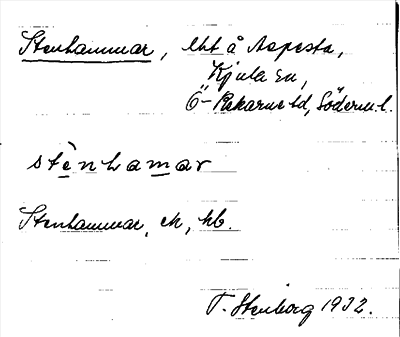 Stenhammar, lht å Aspesta,
Kjula sn,
Ö-Rekarne hd, Söderm. l.
stènhamar
Stenhammar, ek, hb.
T. Stenborg 1932.